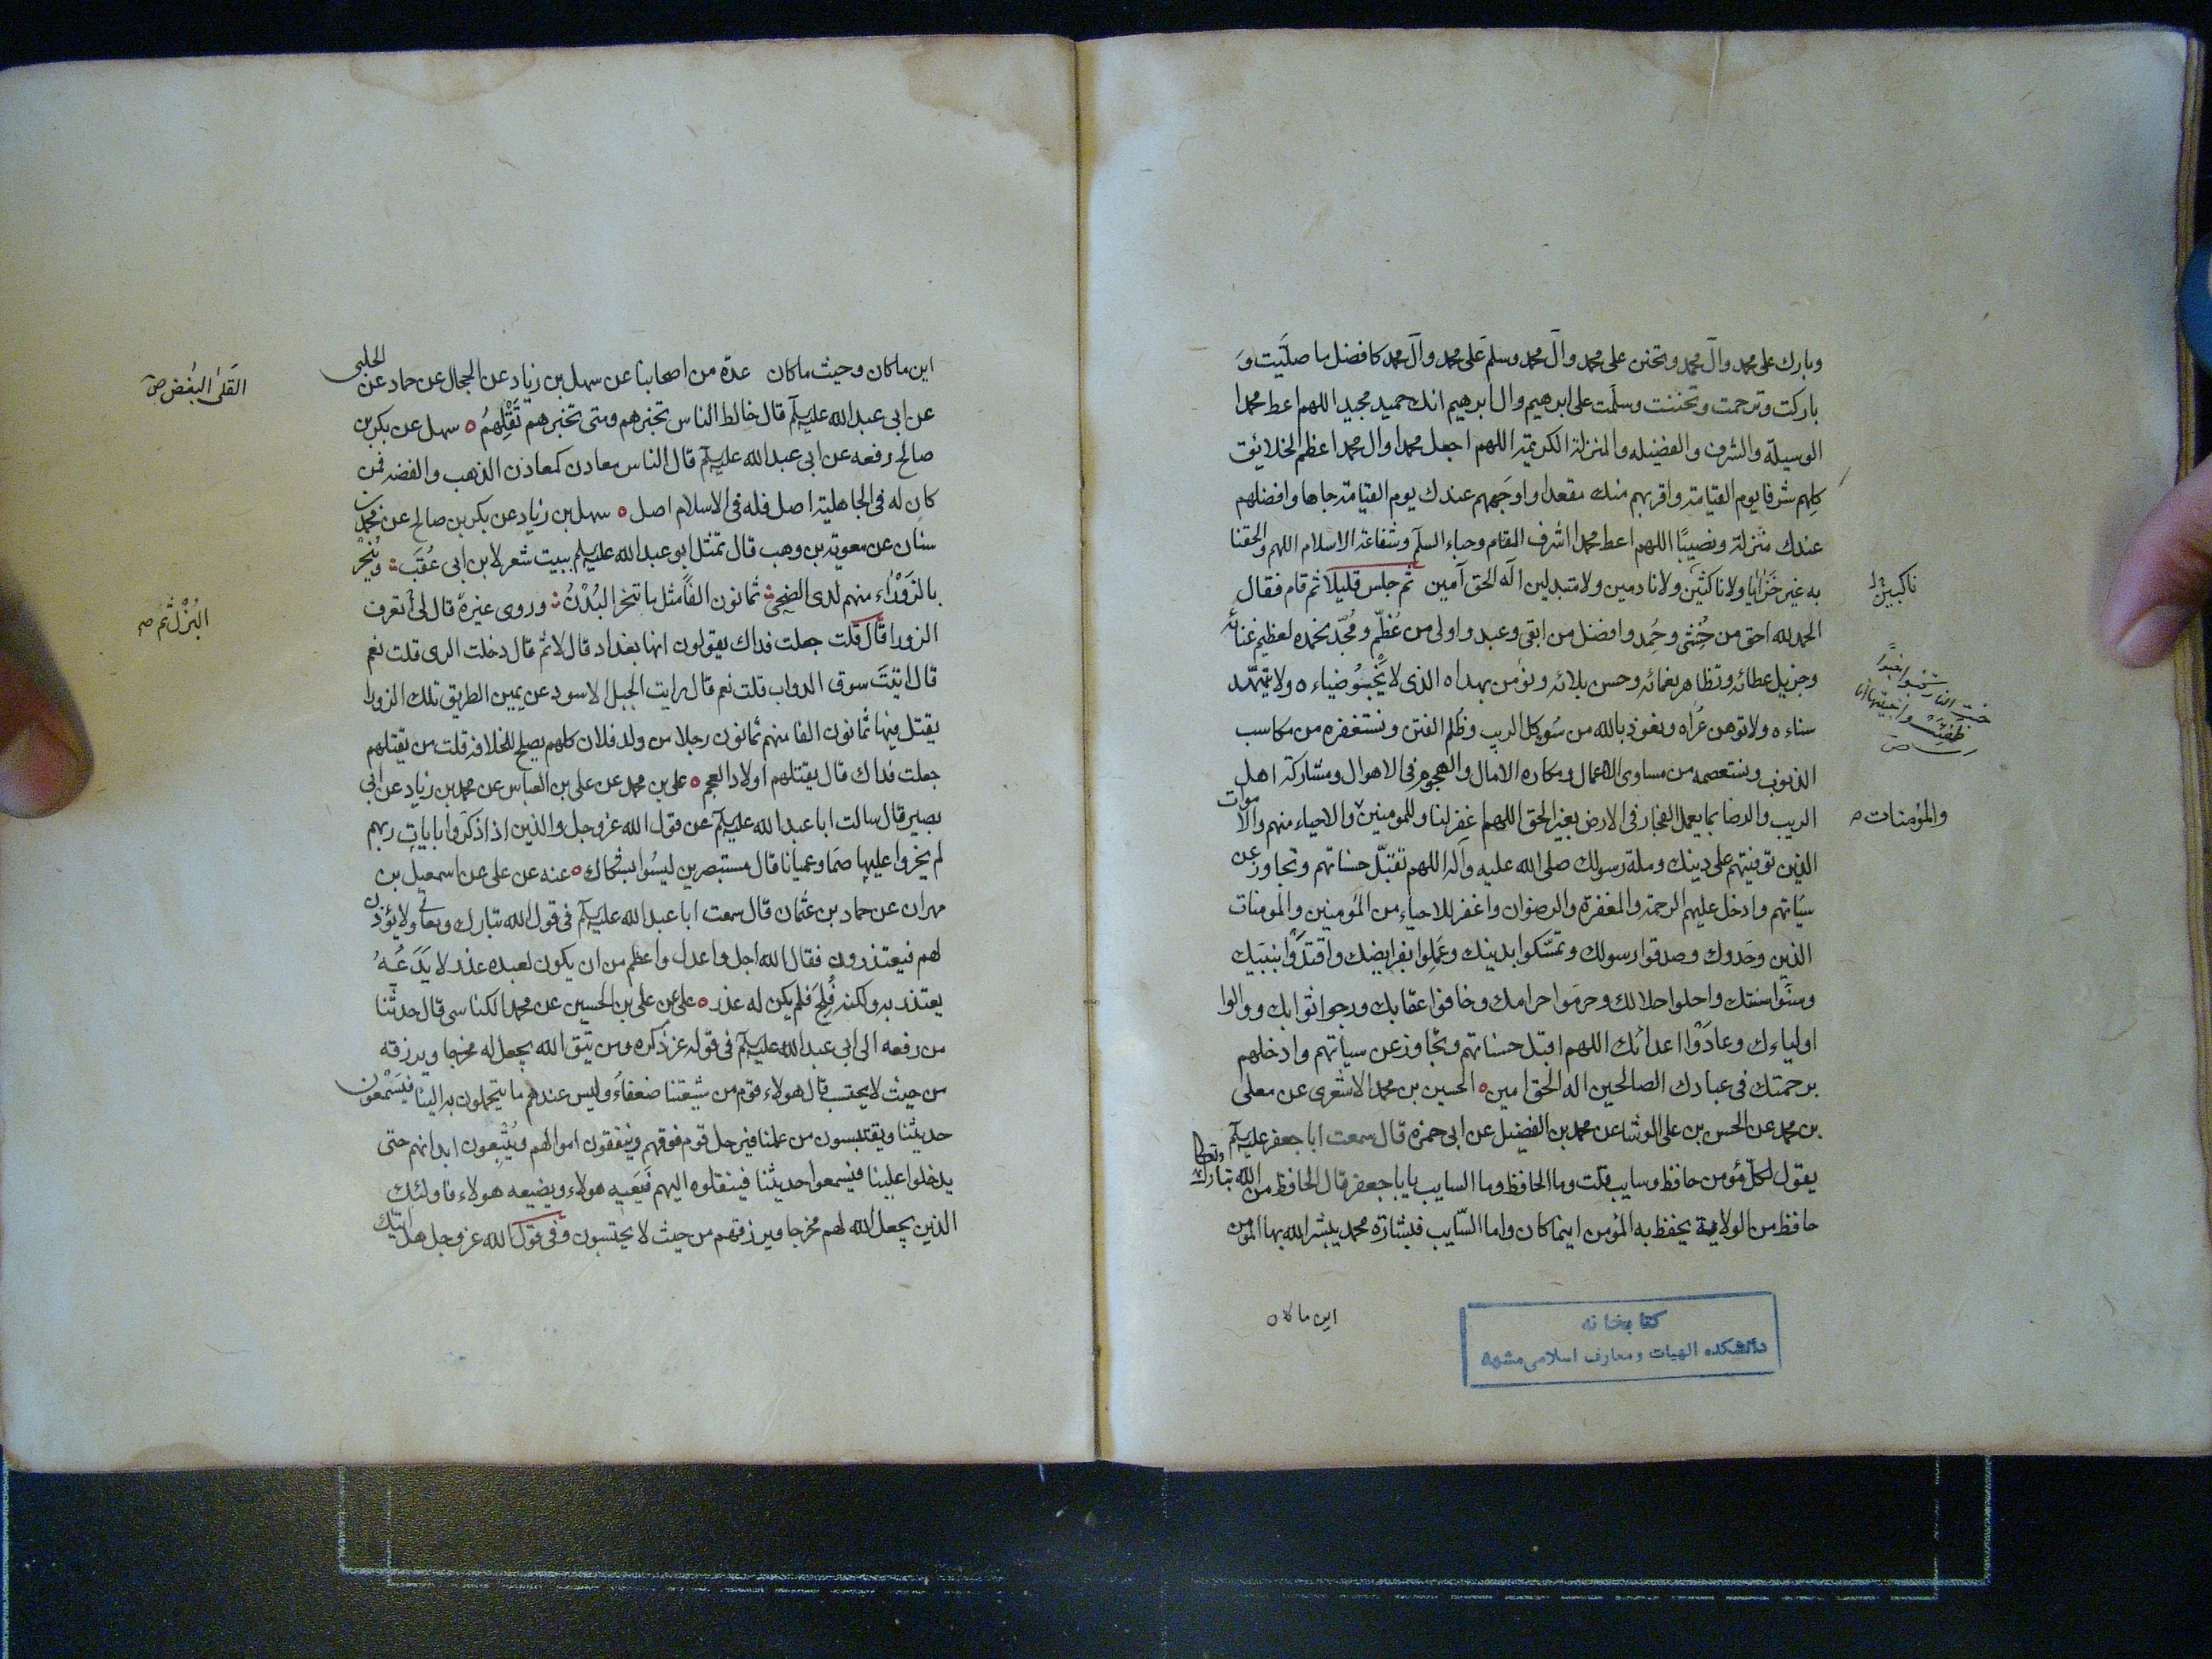 وبارك على محمد وآل محمد وتحنن على محمد وآل محمد وسلم على محمد وآل محمد كافضل ما صلّيت وَ
باركت وترحمت وتحننت وسلّمت على ابرهيم وال ابرهيم انك حميد مجيد اللهم اعط محمدا
الوسيلة والشرف والفضيله والمنزلة الكريمة اللهم اجعل محمدا وال محمد اعظم الخلائق
كلهم شرفا يوم القيامة واقربهم منك مقعدا واوجههم عندك يوم القيامة جاها وافضلهم
عندك منزلة ونصيبًا اللهم اعط محمدا اشرف المقام وحباء السلم وشفاعة الاسلام اللهم والحقنا
به غير خَزَايا ولا ناكثين ولا نادمين ولا متبدلين اله الحق آمين ثم جلس قليلا ثم قام فقال
ناكبين
الحمد لله احق من خُشِى وحُمِد وافضل من اتقى وعبد واولى من عُظّم ومُجّد نحمده لعظيم غنائه
وجزيل عطائه وتظاهر نعمائه وحسن بلائه ونؤمن بهداه الذى لا يَخْبُو ضياءه ولا يتمهّد
خبت النار تخبوا خبوا
طفئت واخبيتها انا
سناءه ولا توهن عُراه ونعوذ بالله من سُوء كل الريب وظُلم الفتن ونستغفره من مكاسب
الذنوب ونستعصمه من مساوى الاعمال ومكاره الامال والهجوم فى الاهوال ومشاركة اهل
الريب والرضا بما يعمل الفجار فى الارض بغير الحق اللهم اغفر لنا وللمومنين والاحياء منهم والاموات
والمؤمنات ص
الذين توفيتهم على دينك وملة رسولك صلى الله عليه وآله اللهم تقبّل حسناتهم وتجاوز عن
سيّاتهم وادخل عليهم الرحمة والمغفرة والرضوان واغفر للاحياء من المومنين والمومنات
الذين وحّدوك وصدقوا رسولك وتمسّكوا بدينك وعَمِلوا بفرايضك واقتدَوْا بنبيك
وسَنّوا سنتك واحلوا حلالك وحرموا حرامك وخافوا عقابك ورجوا ثوابك ووالوا
اولياءك وعادَوْا اعدائك اللهم اقبل حسناتهم وتجاوز عن سيأتهم وادخلهم
برحمتك فى عبادك الصالحين اله الحق امين الحسين بن محمد الاشعرى عن معلى
بن محمد عن الحسن بن على الوشا عن محمد بن الفضيل عن ابى حمزه قال سمعت ابا جعفر عليه السلم
يقول لكل مؤمن حافظ وسايب قلت وما الحافظ وما السايب يابا جعفر قال الحافظ من الله تبارك وتعالى
حافظ من الولاية يحفظ به المؤمن اينما كان واما السّايب فبشارة محمد يبشر الله بها المومن
اين ما كان
كتابخانه
دانشكده الهيات ومعارف اسلامى مشهد
اين ما كان وحيث ما كان عدة من اصحابنا عن سهل بن زياد عن الحجال عن حماد عن الحلبى
القَلىٰ البُغض ص
عن ابى عبد الله عليه السلم قال خالط الناس تخبرهم ومتى تخبرهم تَقْلِهمُ سهل عن بكر بن
صالح رفعه عن ابى عبد الله عليه السلم قال الناس معادن كمعادن الذهب والفضه فمن
كان له فى الجاهلية اصل فله فى الاسلام اصل سهل بن زياد عن بكر بن صالح عن محمد بن
سنان عن معوية بن وهب قال تمثل ابو عبد الله عليه السلم ببيت شعر لابن ابى عُقَب ويُنْحَرُ
بالزَوْرَاء منهم لدى الضحى ثمانون الفًا مثل ما تنحر البُدْنُ وروى غيره قال لى أتعرف
البُزْلُ
الزورا قال قلت جعلت فداك يقولون انها بغداد قال لا ثم قال دخلت الرى قلت نعم
قال اتيتَ سوق الدواب قلت نعم قال رايت الجبل الاسود عن يمين الطريق تلك الزورا
يقتل فيها ثمانون الفا منهم ثمانون رجلا من ولد فلان كلهم يصلح للخلافه قلت من يقتلهم
جعلت فداك قال يقتلهم اولاد العجم على بن محمد عن على بن العباس عن محمد بن زياد عن ابى
بصير قال سالت ابا عبد الله عليه السلم عن قول الله عز وجل والذين اذا ذكروا بايات ربهم
لم يخروا عليها صما وعميانا قال مستبصرين ليسُوا بشكاك عنه عن على عن اسمعيل بن
مهران عن حماد بن عثمان قال سمعت ابا عبد الله عليه السلم فى قول الله تبارك وتعالى ولا يؤذن
لهم فيعتذرون فقال الله اجل واعدل واعظم من ان يكون لعبده عذر لا يَدَعُهُ
يعتذر به ولكنه فُلِجَ فلم يكن له عذر على عن على بن الحسين عن محمد الكناسى قال حدثنا
من رفعه الى ابى عبد الله عليه السلم فى قوله عز ذكره ومن يتق الله يجعل له مخرجا ويرزقه
من حيث لا يحتسب قال هولاء قوم من شيعتنا ضعفاءُ وليس عندهم ما يتحملون به الينا فيَسْمعون
حديثنا ويقتبسون من علمنا فيرحل قوم فوقهم وينفقون اموالهم ويُتْعِبون ابدانهم حتى
يدخلوا علينا فيسمعوا حديثنا فينقلوه اليهم فيَعيه هولاء ويضيعه هولاء فاولئك
الذين يجعل الله لهم مخرجا ويرزقهم من حيث لا يحتسبون وفى قول الله عز وجل هل اتيك